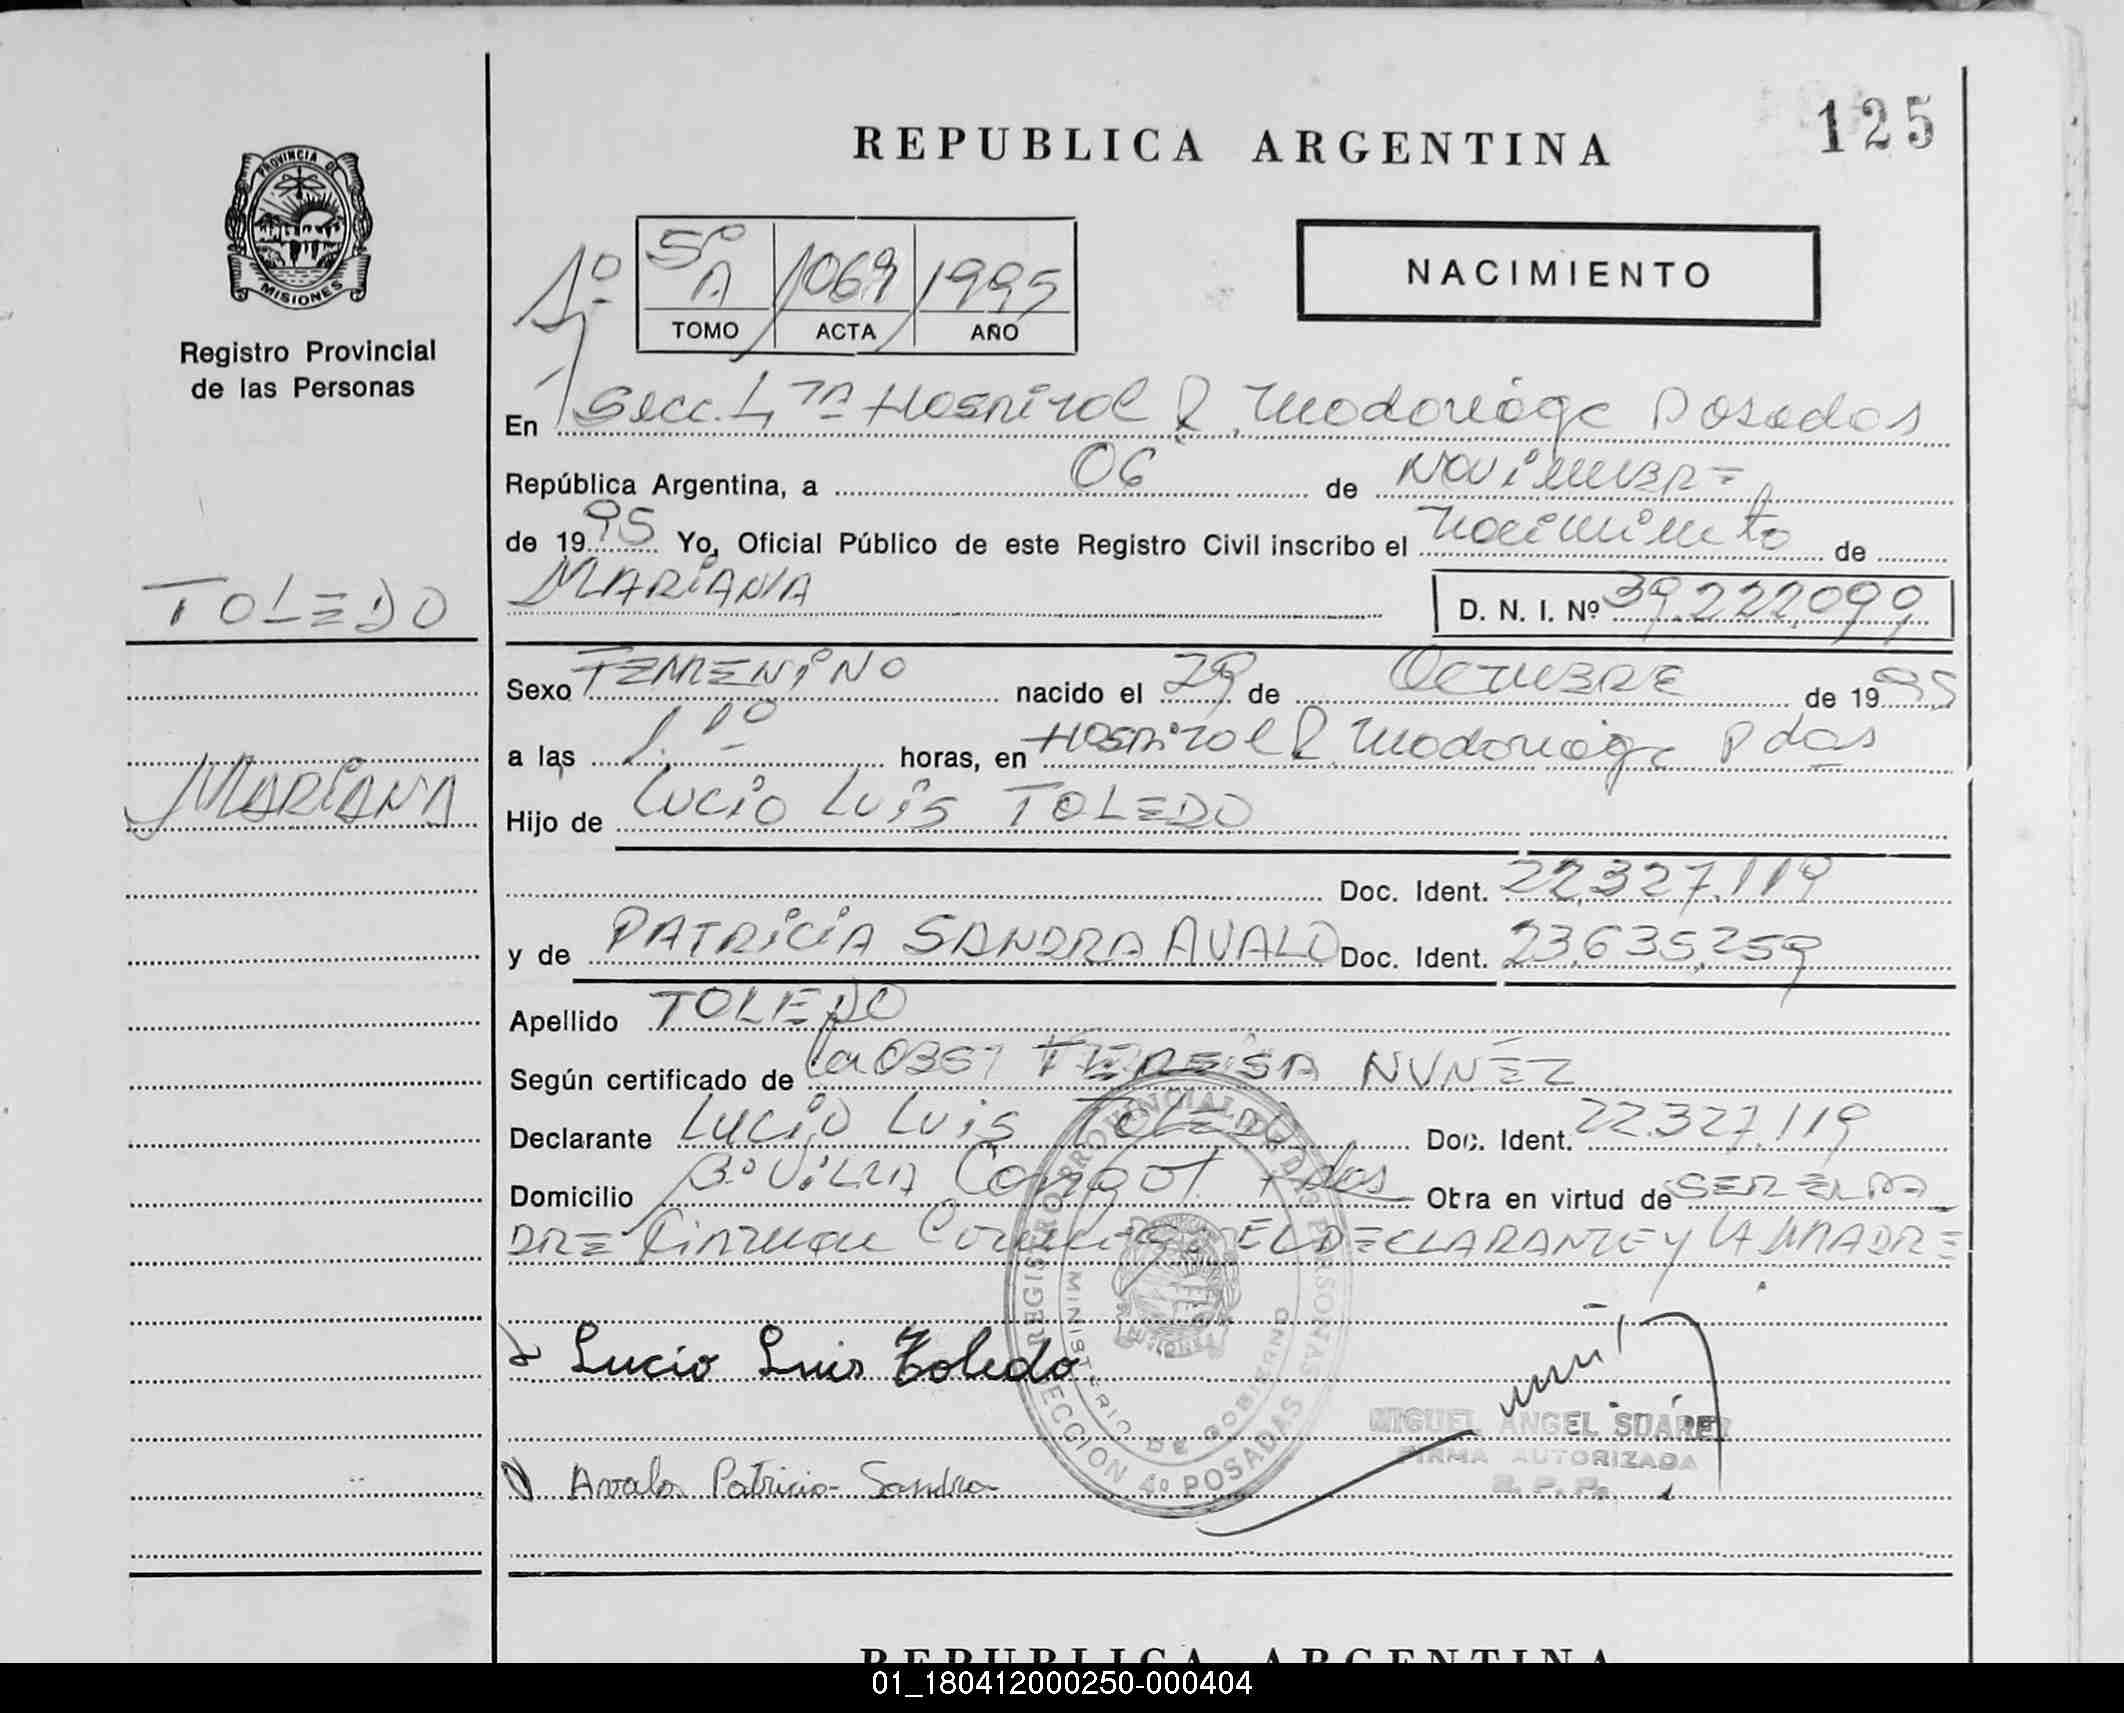 125
REPUBLICA ARGENTINA
PROVINCIA DE
MISIONES
Registro Provincial
de las Personas
1º
5º A 1069 1995
TOMO ACTA AÑO
NACIMIENTO
En Secc. 4ta Hospital R. Madariaga Posadas
República Argentina, a 06 de NOVIEMBRE
de 1995 Yo, Oficial Público de este Registro Civil inscribo el nacimiento de
TOLEDO
MARIANA D. N. I. Nº 39.222.099
Sexo FEMENINO nacido el 29 de OCTUBRE de 1995
a las horas, en Hospital R. Madariaga Pdas
MARIANA
Hijo de LUCIO LUIS TOLEDO
Doc. Ident. 22.327.119
y de PATRICIA SANDRA AVALO Doc. Ident. 23.635.259
Apellido TOLEDO
Según certificado de TERESA NUNEZ
Declarante LUCIO LUIS TOLEDO Doc. Ident. 22.327.119
Domicilio Bº VILLA Pdas Obra en virtud de SER EL PA
DRE EL DECLARANTE Y LA MADRE
Lucio Luis Toledo
Avalo Patricia Sandra
REGISTRO PROVINCIAL DE LAS PERSONAS
MINISTERIO DE GOBIERNO
SECCION 4º POSADAS
MISIONES
MIGUEL ANGEL SUAREZ
FIRMA AUTORIZADA
R. P. P.
REPUBLICA ARGENTINA
01_180412000250-000404